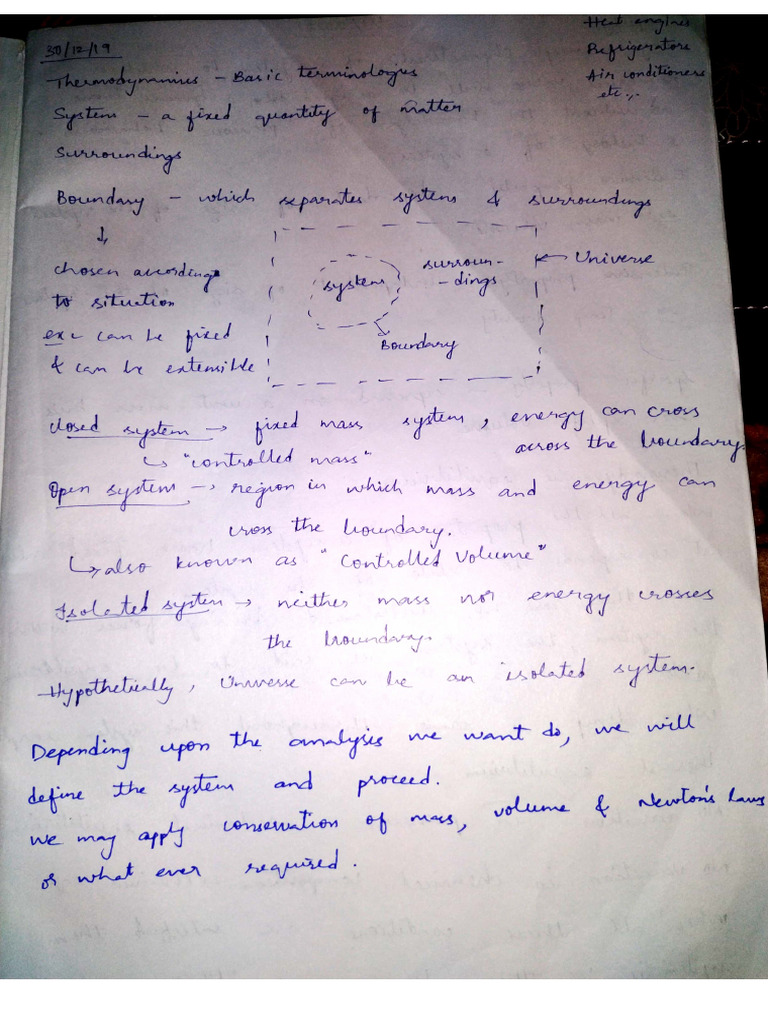 30/12/19
Heat engines
Refrigerators
Air conditioners
etc.,.
Thermodynamics - Basic terminologies
System - a fixed quantity of matter
Surroundings
Boundary - which separates system & surroundings
↓
chosen according
to situation
ex: can be fixed
& can be extensible
system
surroun-
-dings
Boundary
← Universe
closed system → fixed mass system, energy can cross
across the boundary.
↳ "controlled mass"
Open system → region in which mass and energy can
cross the boundary.
↳ also known as "Controlled Volume"
Isolated system → neither mass nor energy crosses
the boundary.
-Hypothetically, Universe can be an isolated system.
Depending upon the analysis we want do, we will
define the system and proceed.
we may apply conservation of mass, volume & Newton's Laws
or what ever required.